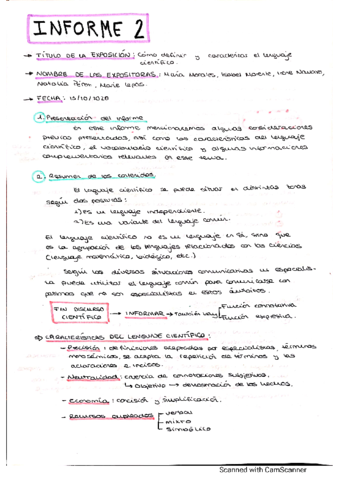 INFORME 2
→ TÍTULO DE LA EXPOSICIÓN: Cómo definir y caracterizar el lenguaje
científico.
→ NOMBRE DE LAS EXPOSITORAS: María Morales, Isabel Morente, Irene Navarro,
Natalia Pérez, Marie
→ FECHA: 15/10/2020
1. Presentación del informe
En este informe mencionaremos algunas consideraciones
previas presentadas, así como las características del lenguaje
científico, el vocabulario científico y algunas informaciones
complementarias relevantes en este tema.
2. Resumen de los contenidos
El lenguaje científico se puede situar en distintas
según dos posturas:
→) es un lenguaje independiente.
→) Es una variedad del lenguaje común.
El lenguaje científico no es un lenguaje en sí, sino que
es la agrupación de los lenguajes relacionados con las ciencias
(lenguaje matemático, biológico, etc.)
Según las diversas situaciones comunicativas un especialis-
ta puede utilizar el lenguaje común para comunicarse con
personas que no son especialistas en estos ámbitos.
FIN DISCURSO
CIENTÍFICO → INFORMAR → Función
Función
Función expresiva.
CARACTERÍSTICAS DEL LENGUAJE CIENTÍFICO:
- Precisión: definiciones adoptadas por especialistas, términos
monosémicos, se acepta la repetición de términos y las
aclaraciones e incisos.
- Neutralidad: carencia de connotaciones subjetivas.
↳ objetivo → demostración de los hechos.
- Economía: concisión y simplificación.
- Recursos empleados
verbal
mixto
simbólico
Scanned with CamScanner